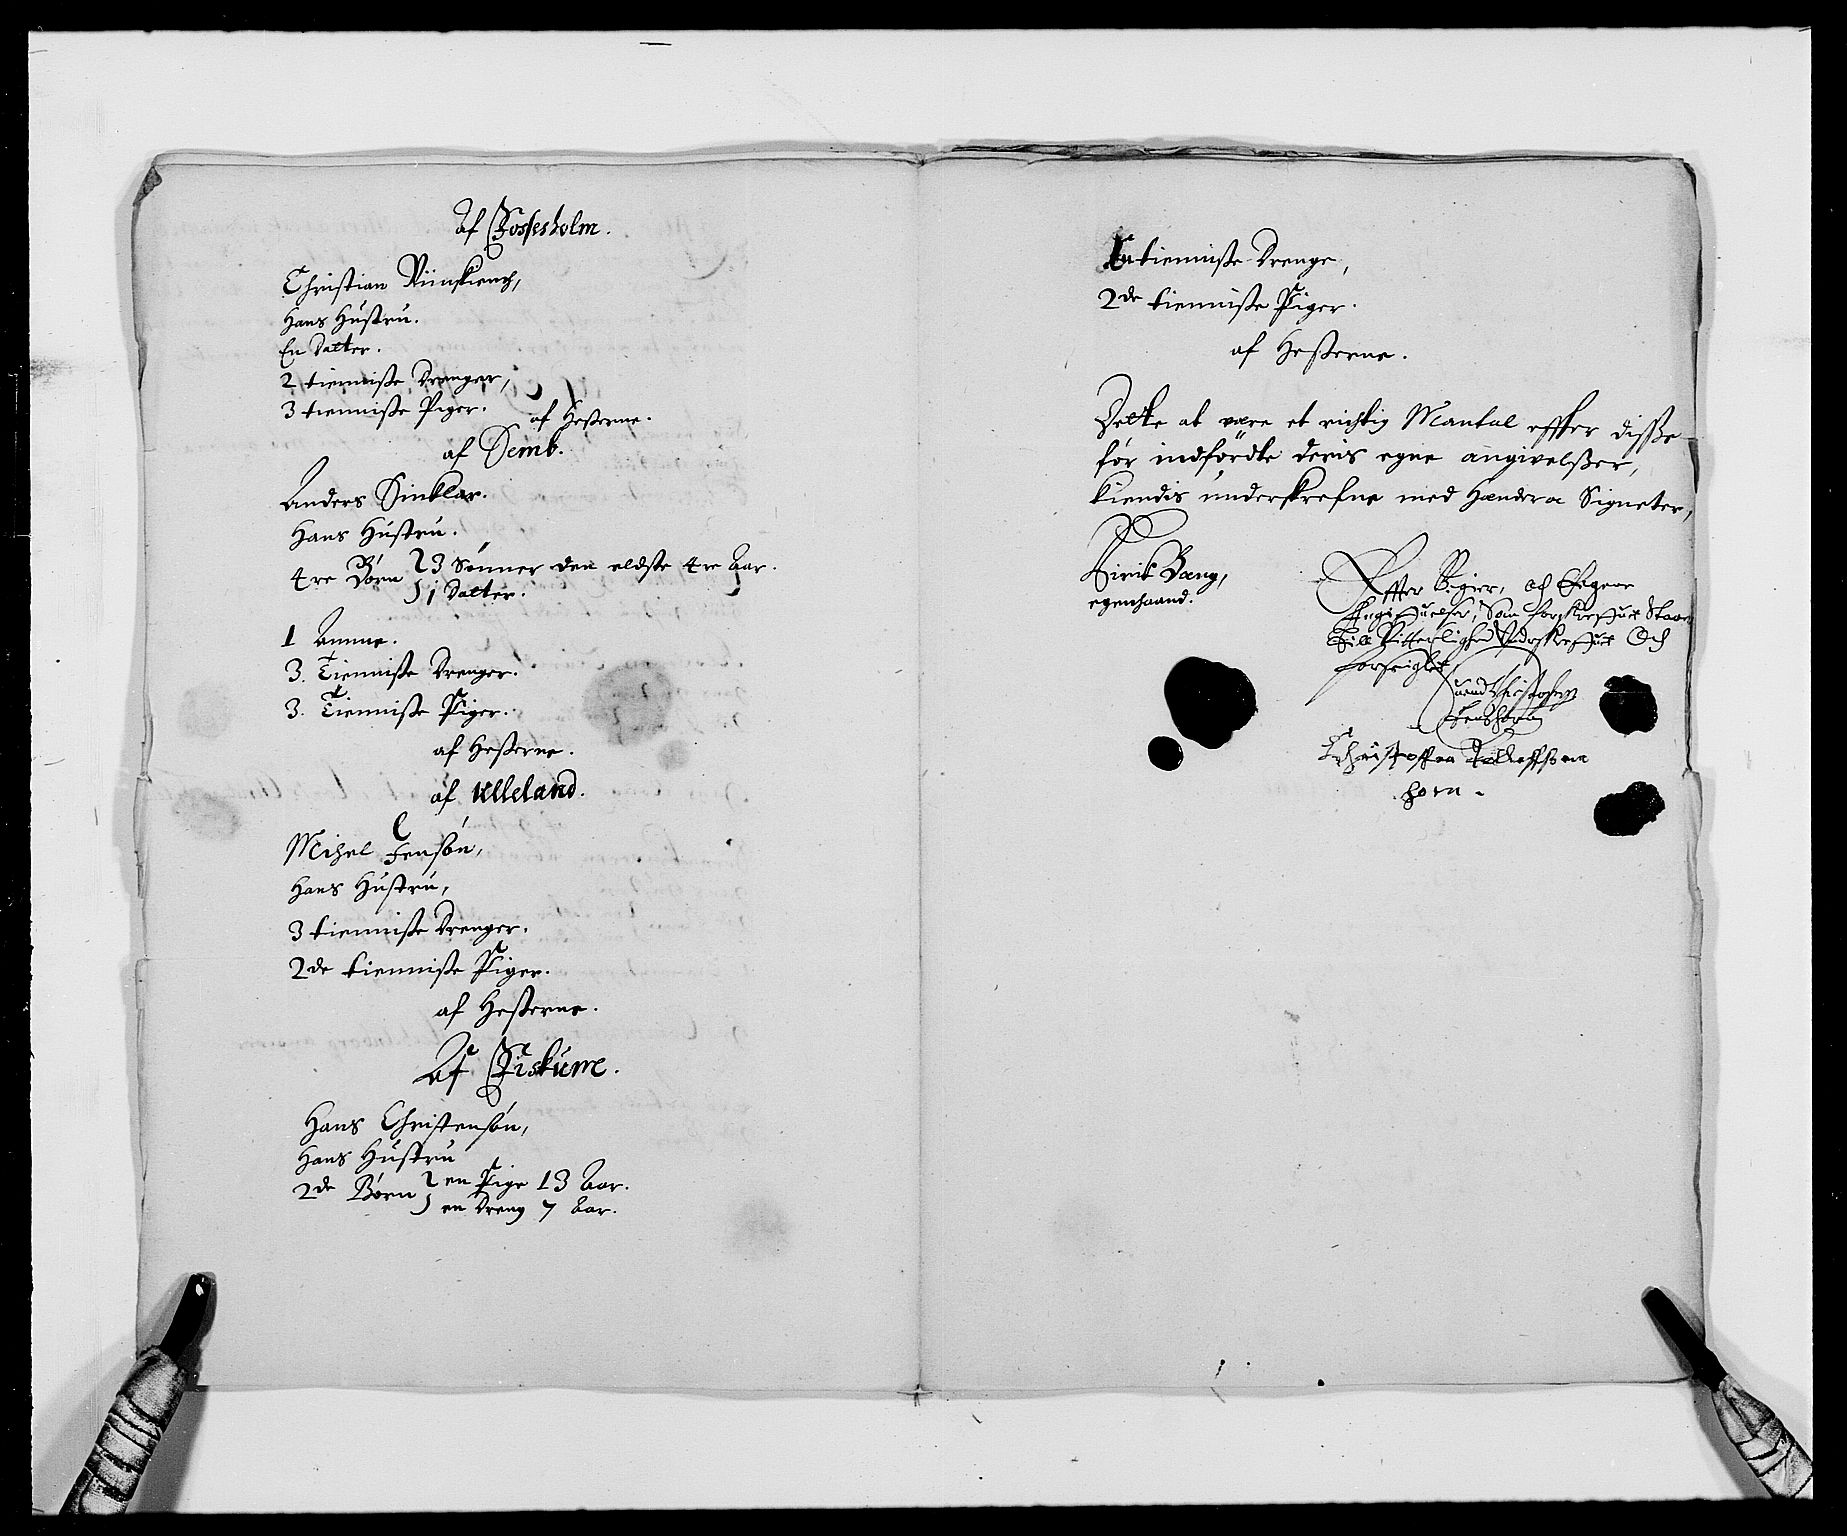 Af Fossesholm.
Christian Viinkiench,
Hans Hustru.
En Datter.
2 tienniste Drenger,
3 tienniste Piger.
af Hesterne.
af Semb.
Anders Sinklar.
Hans Hustru.
4re Børn 3 Sønner den eldste 4re Aar.
1 Datter.
1 Amme.
3. Tienniste Drenger.
3. Tienniste Piger.
af Hesterne.
af Ulleland.
Mihel Jensøn,
Hans Hustru,
3 tienniste Drenger.
2de tienniste Piger.
af Hesterne.
Af Fiskume.
Hans Christensøn,
Hans Hustru
2de Børn en Pige 13 Aar.
en Dreng 7 Aar.
En tienniste Drenge,
2de tienniste Piger.
af Hesterne.
Dette at være et richtig Mantal effter disse
før indførdte deris egne angivelsser,
kiendis underskrefne med Hender oc Signeter,
Eirik Bang,
egenhaand.
Efter Bøgier, och Egene
som forskreffuit Staar
Till Vitterlighed Underskreffuit Och
forseiglet
Christoffer
horn.